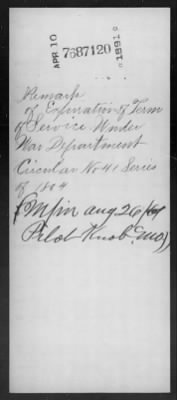 APR 10 7687120 1891
Remark
of Expiration of Term
of Service Under
War Department
Circular No 41 Series
of 1864
Aug 26/64
Pilot Knob, Mo)